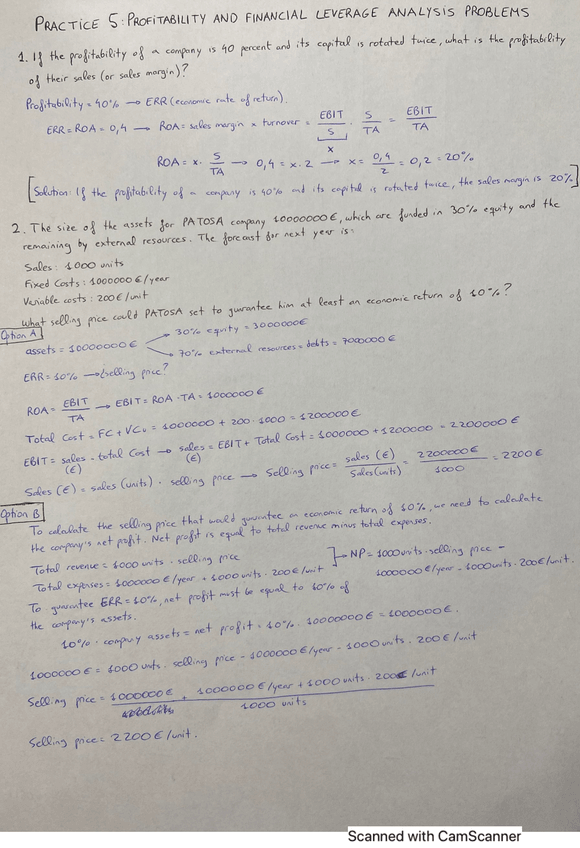 PRACTICE 5: PROFITABILITY AND FINANCIAL LEVERAGE ANALYSIS PROBLEMS
1. If the profitability of a company is 40 percent and its capital is rotated twice, what is the profitability
of their sales (or sales margin)?
Profitability = 40% → ERR (economic rate of return).
ERR = ROA = 0,4 → ROA = sales margin x turnover = EBIT/S · S/TA = EBIT/TA
x
ROA = x · S/TA → 0,4 = x · 2 → x = 0,4/2 = 0,2 = 20%
[Solution: If the profitability of a company is 40% and its capital is rotated twice, the sales margin is 20%]
2. The size of the assets for PATOSA company 10000000€, which are funded in 30% equity and the
remaining by external resources. The forecast for next year is:
Sales: 1000 units
Fixed Costs: 1000000 €/year
Variable costs: 200€/unit
What selling price could PATOSA set to guarantee him at least an economic return of 10%?
Option A
assets = 10000000€
30% equity = 3000000€
70% external resources = debts = 7000000 €
ERR = 10% → ¿selling price?
ROA = EBIT/TA → EBIT = ROA · TA = 1000000 €
Total Cost = FC + VCu = 1000000 + 200 · 1000 = 1200000 €
EBIT = sales (€) - total Cost → sales (€) = EBIT + Total Cost = 1000000 + 1200000 = 2200000 €
Sales (€) = sales (units) · selling price → Selling price = sales (€)/Sales (units) = 2200000 €/1000 = 2200 €
Option B
To calculate the selling price that would guarantee an economic return of 10%, we need to calculate
the company's net profit. Net profit is equal to total revenue minus total expenses.
Total revenue = 1000 units · selling price
Total expenses = 1000000 €/year + 1000 units · 200 €/unit
NP = 1000 units · selling price -
1000000 €/year - 1000 units · 200€/unit.
To guarantee ERR = 10%, net profit must be equal to 10% of
the company's assets.
10% · company assets = net profit = 10% · 10000000 € = 1000000 €.
1000000 € = 1000 units · selling price - 1000000 €/year - 1000 units · 200 €/unit
Selling price = 1000000 € + 1000000 €/year + 1000 units · 200€ /unit
1000 units
Selling price = 2200 € /unit.
Scanned with CamScanner